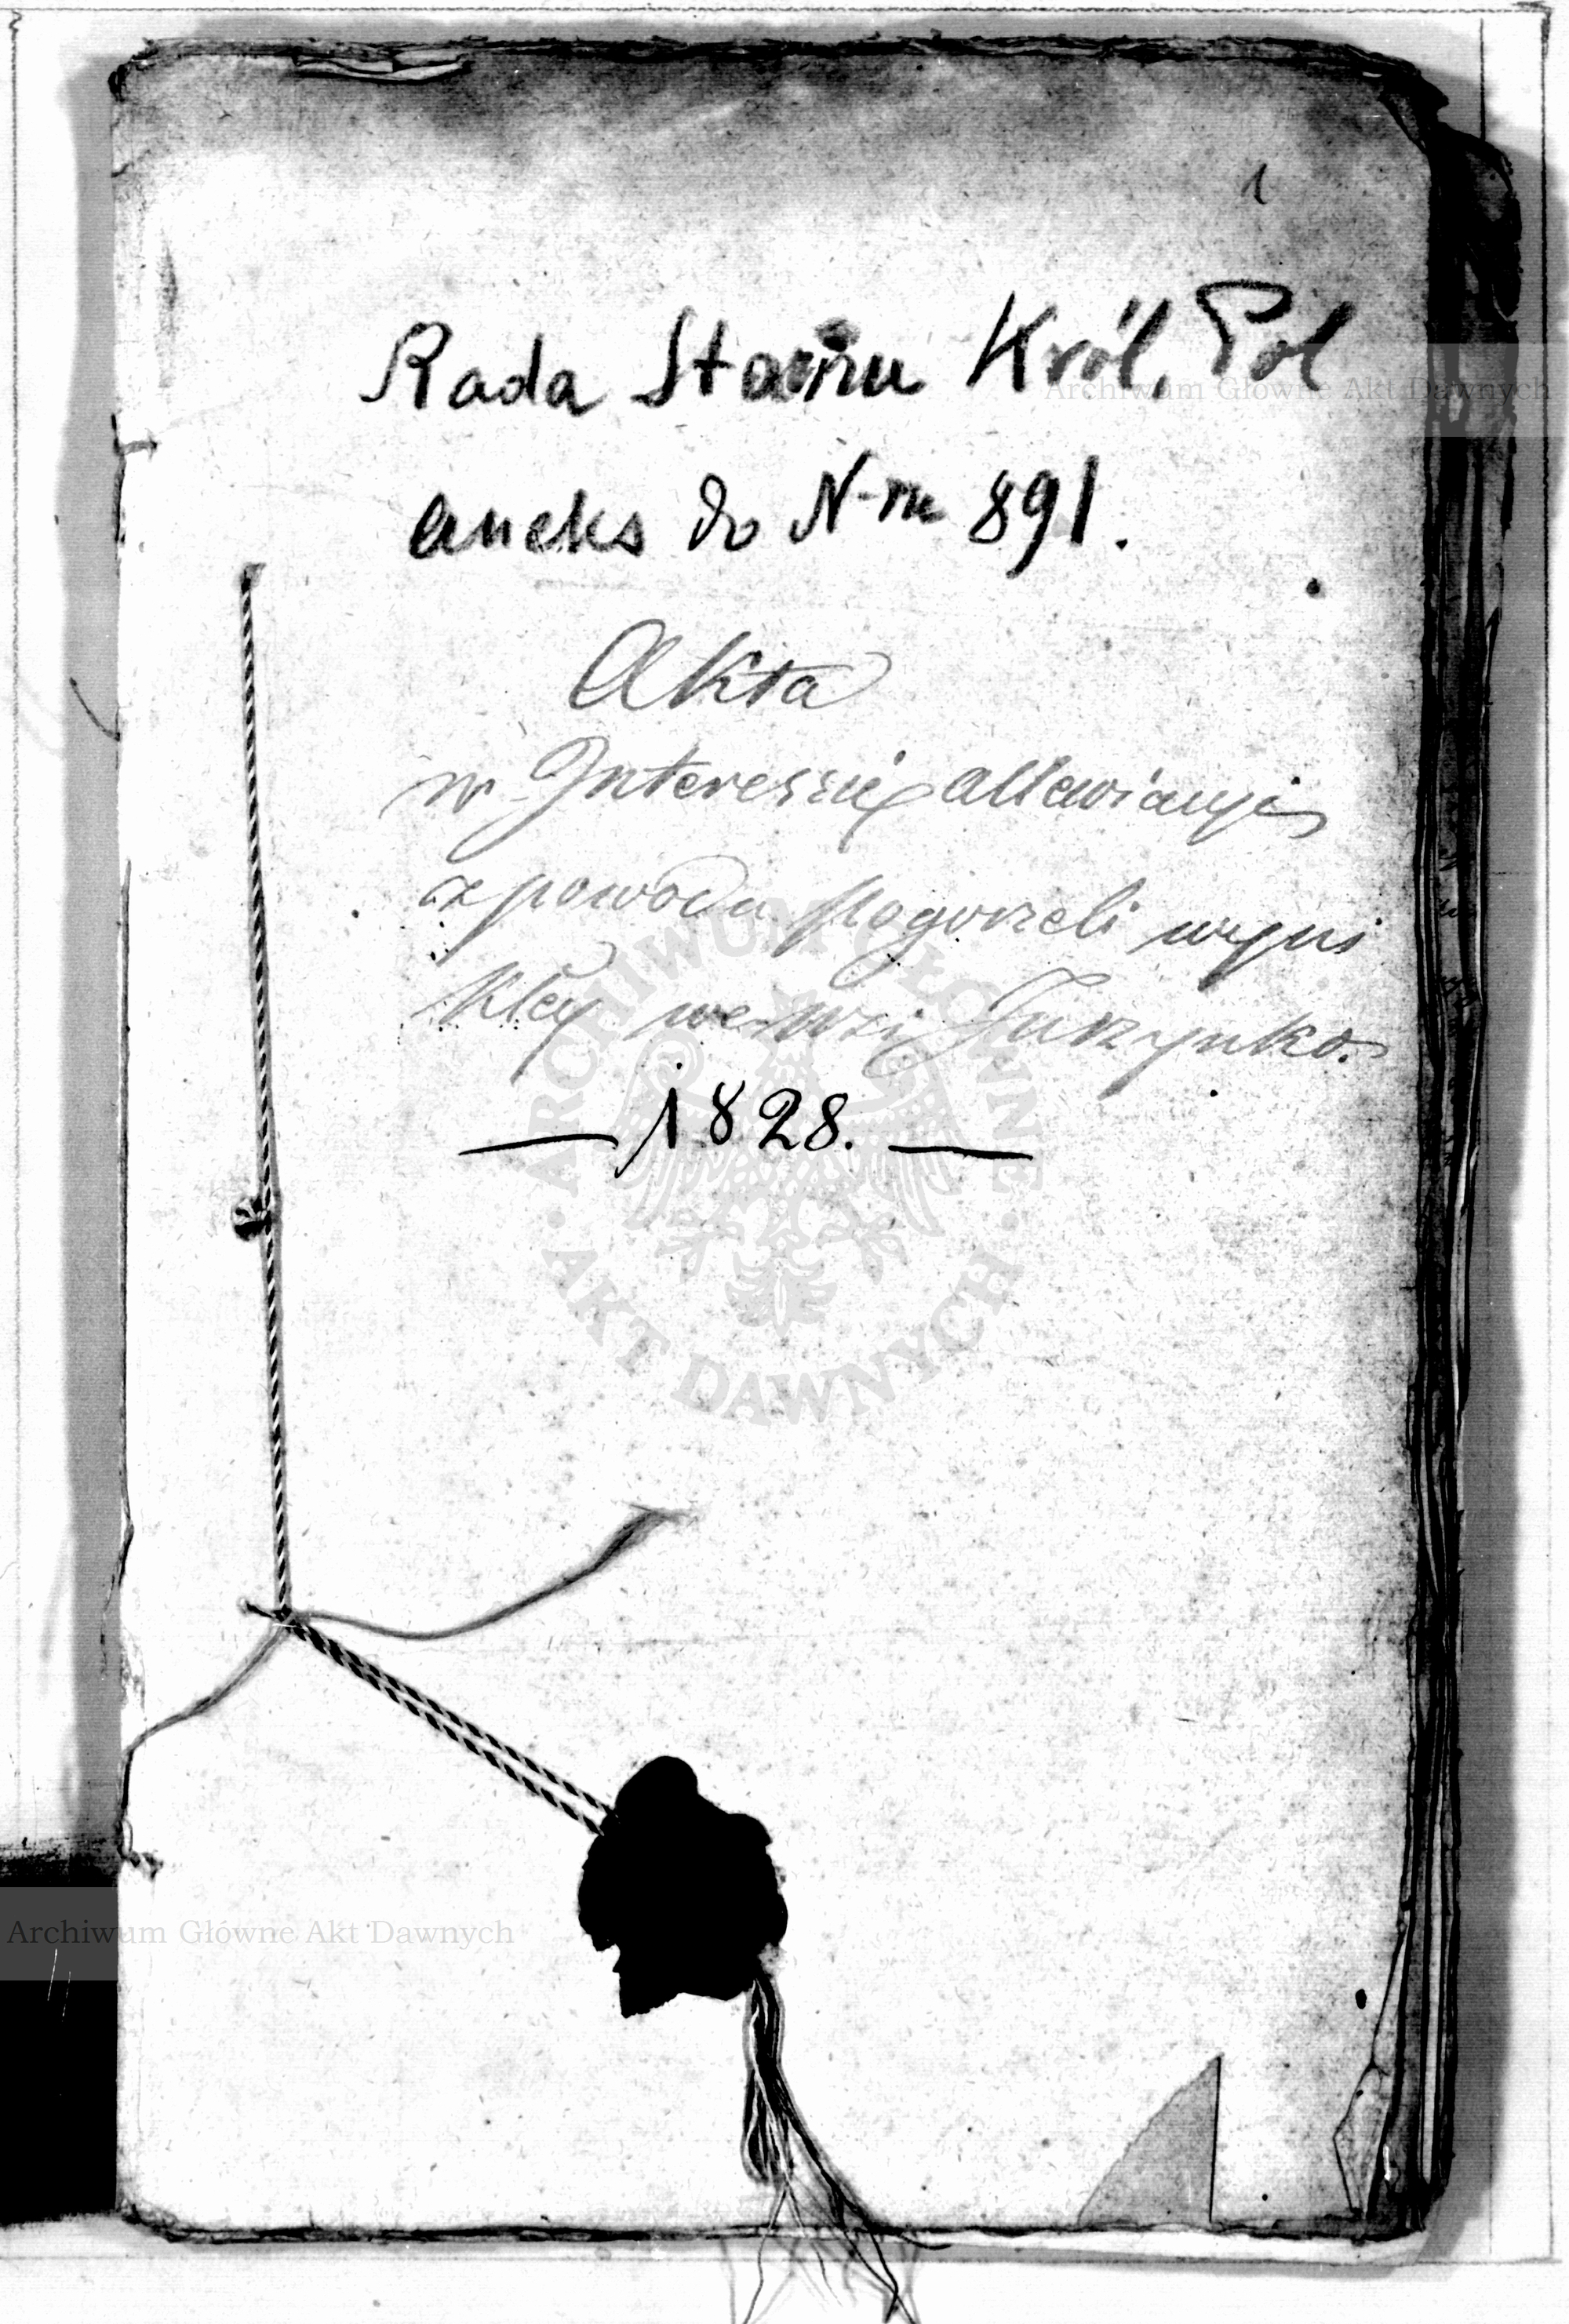 1
Rada Stanu Król. Pol
aneks do N-ru 891.
Akta
w Interessie allewiacyi
z powodu pogorzeli wyni
kłey we wsi Jurzynko.
— 1828. —
Archiwum Główne Akt Dawnych
ARCHIWUM GŁÓWNE
AKT DAWNYCH
Archiwum Główne Akt Dawnych